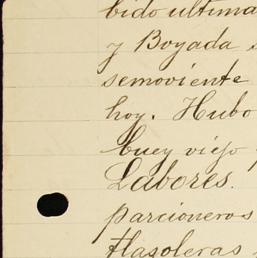 bido ultima
y Boyada s
semoviente
hoy. Hubo
buey viejo
Labores.
parcioneros
tlasoleras